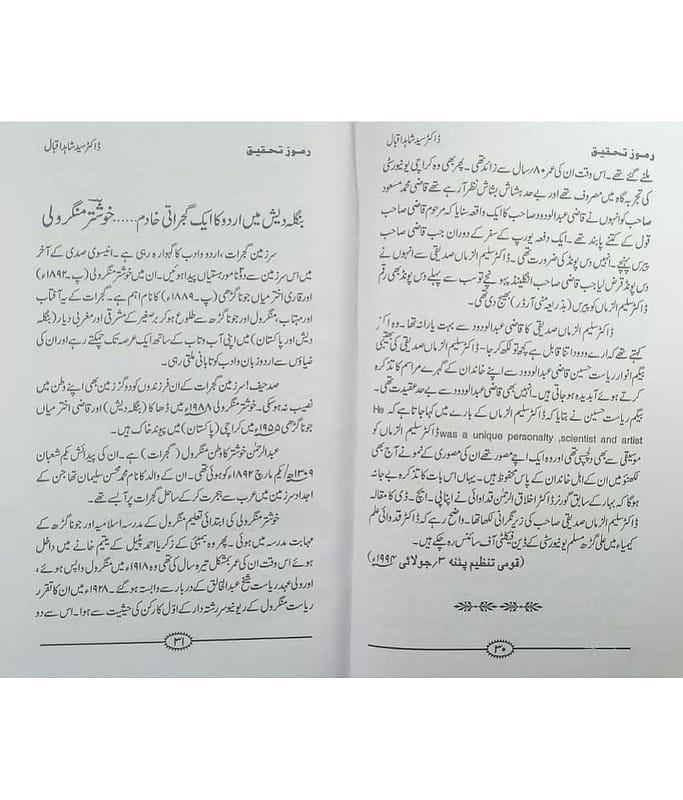 رموزِ تحقیق
ڈاکٹر سید شاہد اقبال
ملنے گئے تھے۔ اس وقت ان کی عمر ۸۰ سال سے زائد تھی۔ پھر بھی وہ کراچی یونیورسٹی
کی تجربہ گاہ میں مصروف تھے اور بے حد ہشاش بشاش نظر آ رہے تھے قاضی محمد مسعود
صاحب کو انہوں نے قاضی عبدالودود صاحب کا ایک واقعہ سنایا کہ مرحوم قاضی صاحب
قول کے کتنے پابند تھے۔ ایک دفعہ یورپ کے سفر کے دوران جب قاضی صاحب
پیرس پہنچے۔ انہیں دس پونڈ کی ضرورت تھی۔ ڈاکٹر سلیم الزماں صدیقی سے انہوں نے دس
پونڈ قرض لیا جب قاضی صاحب انگلینڈ پہونچے تو سب سے پہلے دس پونڈ بھی رقم
ڈاکٹر سلیم الزماں کو پیرس (بذریعہ منی آرڈر) بھیج دی تھی۔
ڈاکٹر سلیم الزماں صدیقی کا قاضی عبدالودود سے بہت یارانہ تھا۔ وہ اکثر
کہتے تھے کہ ارے ودود اتنا قابل ہے کچھ تو لکھ کر جا۔ ڈاکٹر سلیم الزماں صدیقی کی بھتیجی
بیگم انوار ریاست حسین قاضی عبدالودود سے اپنے خاندان کے گہرے مراسم کا تذکرہ
کرتے ہوئے آبدیدہ ہو جاتی ہیں۔ انہیں بھی قاضی عبدالودود سے بے حد عقیدت تھی۔
بیگم ریاست حسین نے بتایا کہ ڈاکٹر سلیم الزماں کے بارے میں کہا جاتا ہے کہ He
was a unique personalty ,scientist and artist ڈاکٹر سلیم الزماں کو
موسیقی سے بھی دلچسپی تھی اور وہ ایک اچھے مصور تھے ان کی مصوری کے نمونے آج بھی
لکھنؤ میں ان کے اہل خاندان کے پاس محفوظ ہیں۔ یہاں اس بات کا تذکرہ بے جا نہ
ہوگا کہ بہار کے سابق گورنر ڈاکٹر اخلاق الرحمٰن قدوائی نے اپنا پی۔ ایچ۔ ڈی کا مقالہ
ڈاکٹر سلیم الزماں صدیقی صاحب کی زیر نگرانی لکھا تھا۔ واضح رہے کہ ڈاکٹر قدوائی علم
کیمیاء میں علی گڑھ مسلم یونیورسٹی کے ڈین فیکلٹی آف سائنس رہ چکے ہیں۔
(قومی تنظیم پٹنہ ۳؍ جولائی ۱۹۹۴ء)
۳۰
رموزِ تحقیق
ڈاکٹر سید شاہد اقبال
بنگلہ دیش میں اردو کا ایک گجراتی خادم......خوشتر منگرولی
سرزمین گجرات، اردو و ادب کا گہوارہ رہی ہے۔ انیسوی صدی کے آخر
میں اس سرزمین سے دو نامور ہستیاں پیدا ہوئیں۔ ان میں خوشتر منگرولی (پ۔ ۱۸۹۲ء)
اور قاری اختر میاں جونا گڑھی (پ۔ ۱۸۸۹ء) کا نام اہم ہے۔ گجرات کے یہ آفتاب
اور مہتاب، منگرول اور جونا گڑھ سے طلوع ہو کر برصغیر کے مشرقی اور مغربی دیار (بنگلہ
دیش اور پاکستان) میں اپنی آب و تاب کے ساتھ ایک عرصہ تک چمکتے رہے اور ان کی
ضیاؤں سے اردو زبان و ادب کو تابانی ملتی رہی۔
صد حیف! سرزمین گجرات کے ان فرزندوں کو دو گز زمین بھی اپنے وطن میں
نصیب نہ ہوسکی۔ خوشتر منگرولی ۱۹۸۸ء میں ڈھاکا (بنگلہ دیش) اور قاضی اختر میاں
جونا گڑھی ۱۹۵۵ء میں کراچی (پاکستان) میں پیوند خاک ہیں۔
عبدالرحمٰن خوشتر کا وطن منگرول (گجرات) ہے۔ ان کی پیدائش یکم شعبان
۱۳۰۹ھ / یکم مارچ ۱۸۹۲ء کو ہوئی تھی۔ ان کے والد کا نام محمد محسن سلیمان تھا جن کے
اجداد سرزمین عرب سے ہجرت کر کے ساحل گجرات پر آ بسے تھے۔
خوشتر منگرولی کی ابتدائی تعلیم منگرول کے مدرسہ اسلامیہ اور جونا گڑھ کے
مہابت مدرسہ میں ہوئی۔ پھر وہ بمبئی کے زکریا احمد پٹیل کے یتیم خانے میں داخل
ہوئے اس وقت ان کی عمر بمشکل تیرہ سال کی تھی وہ ۱۹۱۸ء میں منگرول واپس ہوئے،
اور ولی عہد ریاست شیخ عبدالخالق کے دربار سے وابستہ ہو گئے۔ ۱۹۲۸ء میں ان کا تقرر
ریاست منگرول کے ریونیو سررشتہ دار کے اوّل کارکن کی حیثیت سے ہوا۔ اس سے دو
۳۱